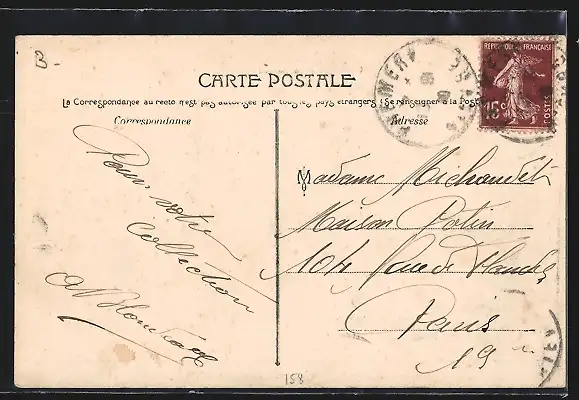 B-
CARTE POSTALE
La Correspondance au recto n'est pas autorisée par tous les pays étrangers (Se renseigner à la Poste
Correspondance
Adresse
REPUBLIQUE FRANÇAISE
15c
POSTES
Pour votre
collection
Madame Michaudet
Maison Potin
104 Rue de Flandre
Paris
19
158